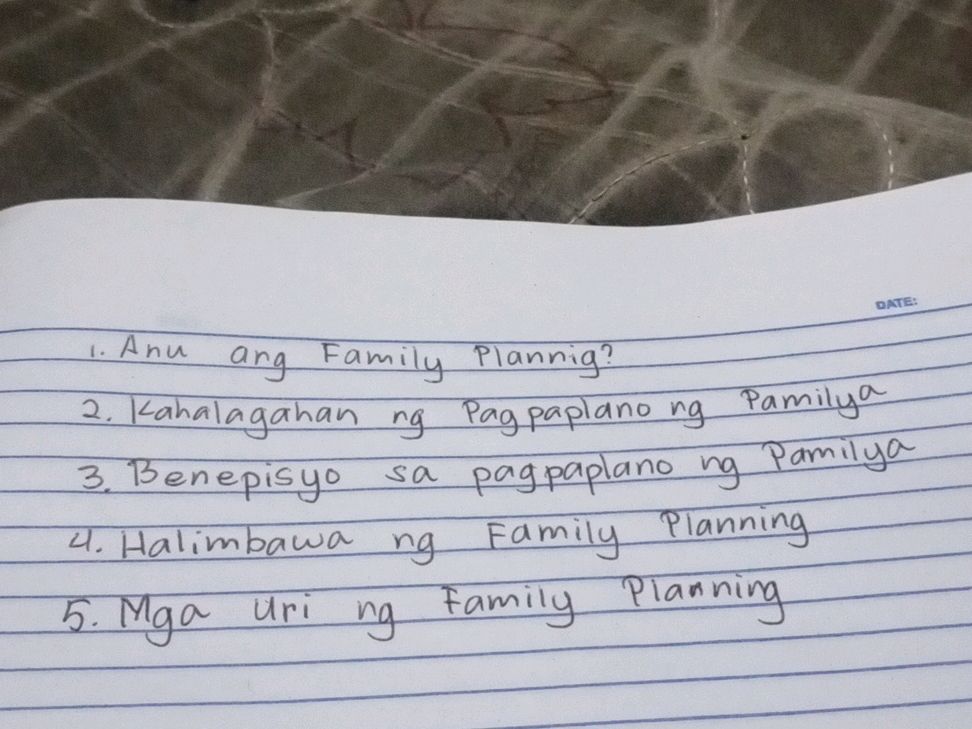 DATE:
1. Anu ang Family Plannig?
2. Kahalagahan ng Pagpaplano ng Pamilya
3. Benepisyo sa pagpaplano ng Pamilya
4. Halimbawa ng Family Planning
5. Mga uri ng Family Planning